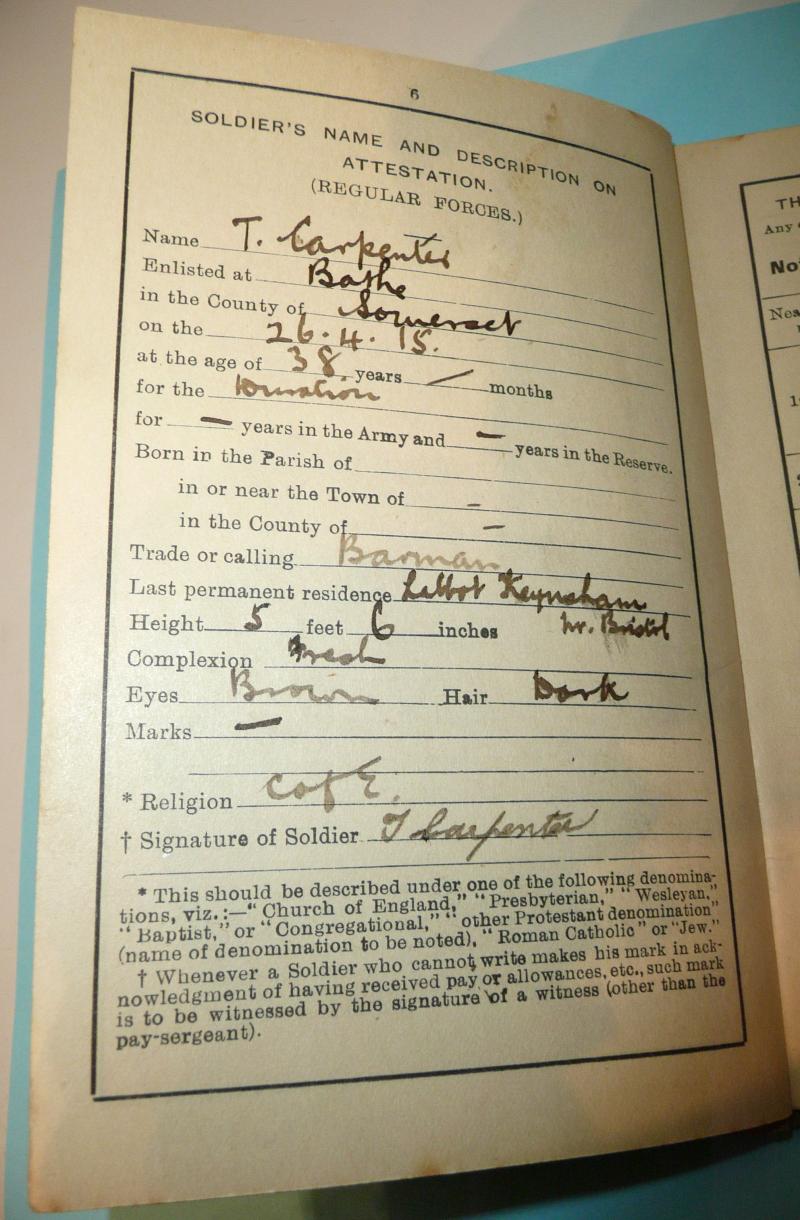 6
SOLDIER'S NAME AND DESCRIPTION ON
ATTESTATION.
(REGULAR FORCES.)
Name T. Carpenter
Enlisted at Bathe
in the County of Somerset
on the 26.4.15.
at the age of 38 years — months
for the Duration
for — years in the Army and — years in the Reserve.
Born in the Parish of
in or near the Town of —
in the County of —
Trade or calling Barman
Last permanent residence Keynsham
Height 5 feet 6 inches nr. Bristol
Complexion Fresh
Eyes Brown Hair Dark
Marks —
* Religion C of E.
† Signature of Soldier T Carpenter
* This should be described under one of the following denomina-
tions, viz.:—"Church of England," "Presbyterian," "Wesleyan,"
"Baptist," or "Congregational," "other Protestant denomination"
(name of denomination to be noted), "Roman Catholic" or "Jew."
† Whenever a Soldier who cannot write makes his mark in ack-
nowledgment of having received pay or allowances, etc., such mark
is to be witnessed by the signature of a witness (other than the
pay-sergeant).
TH
Any
No
Nea